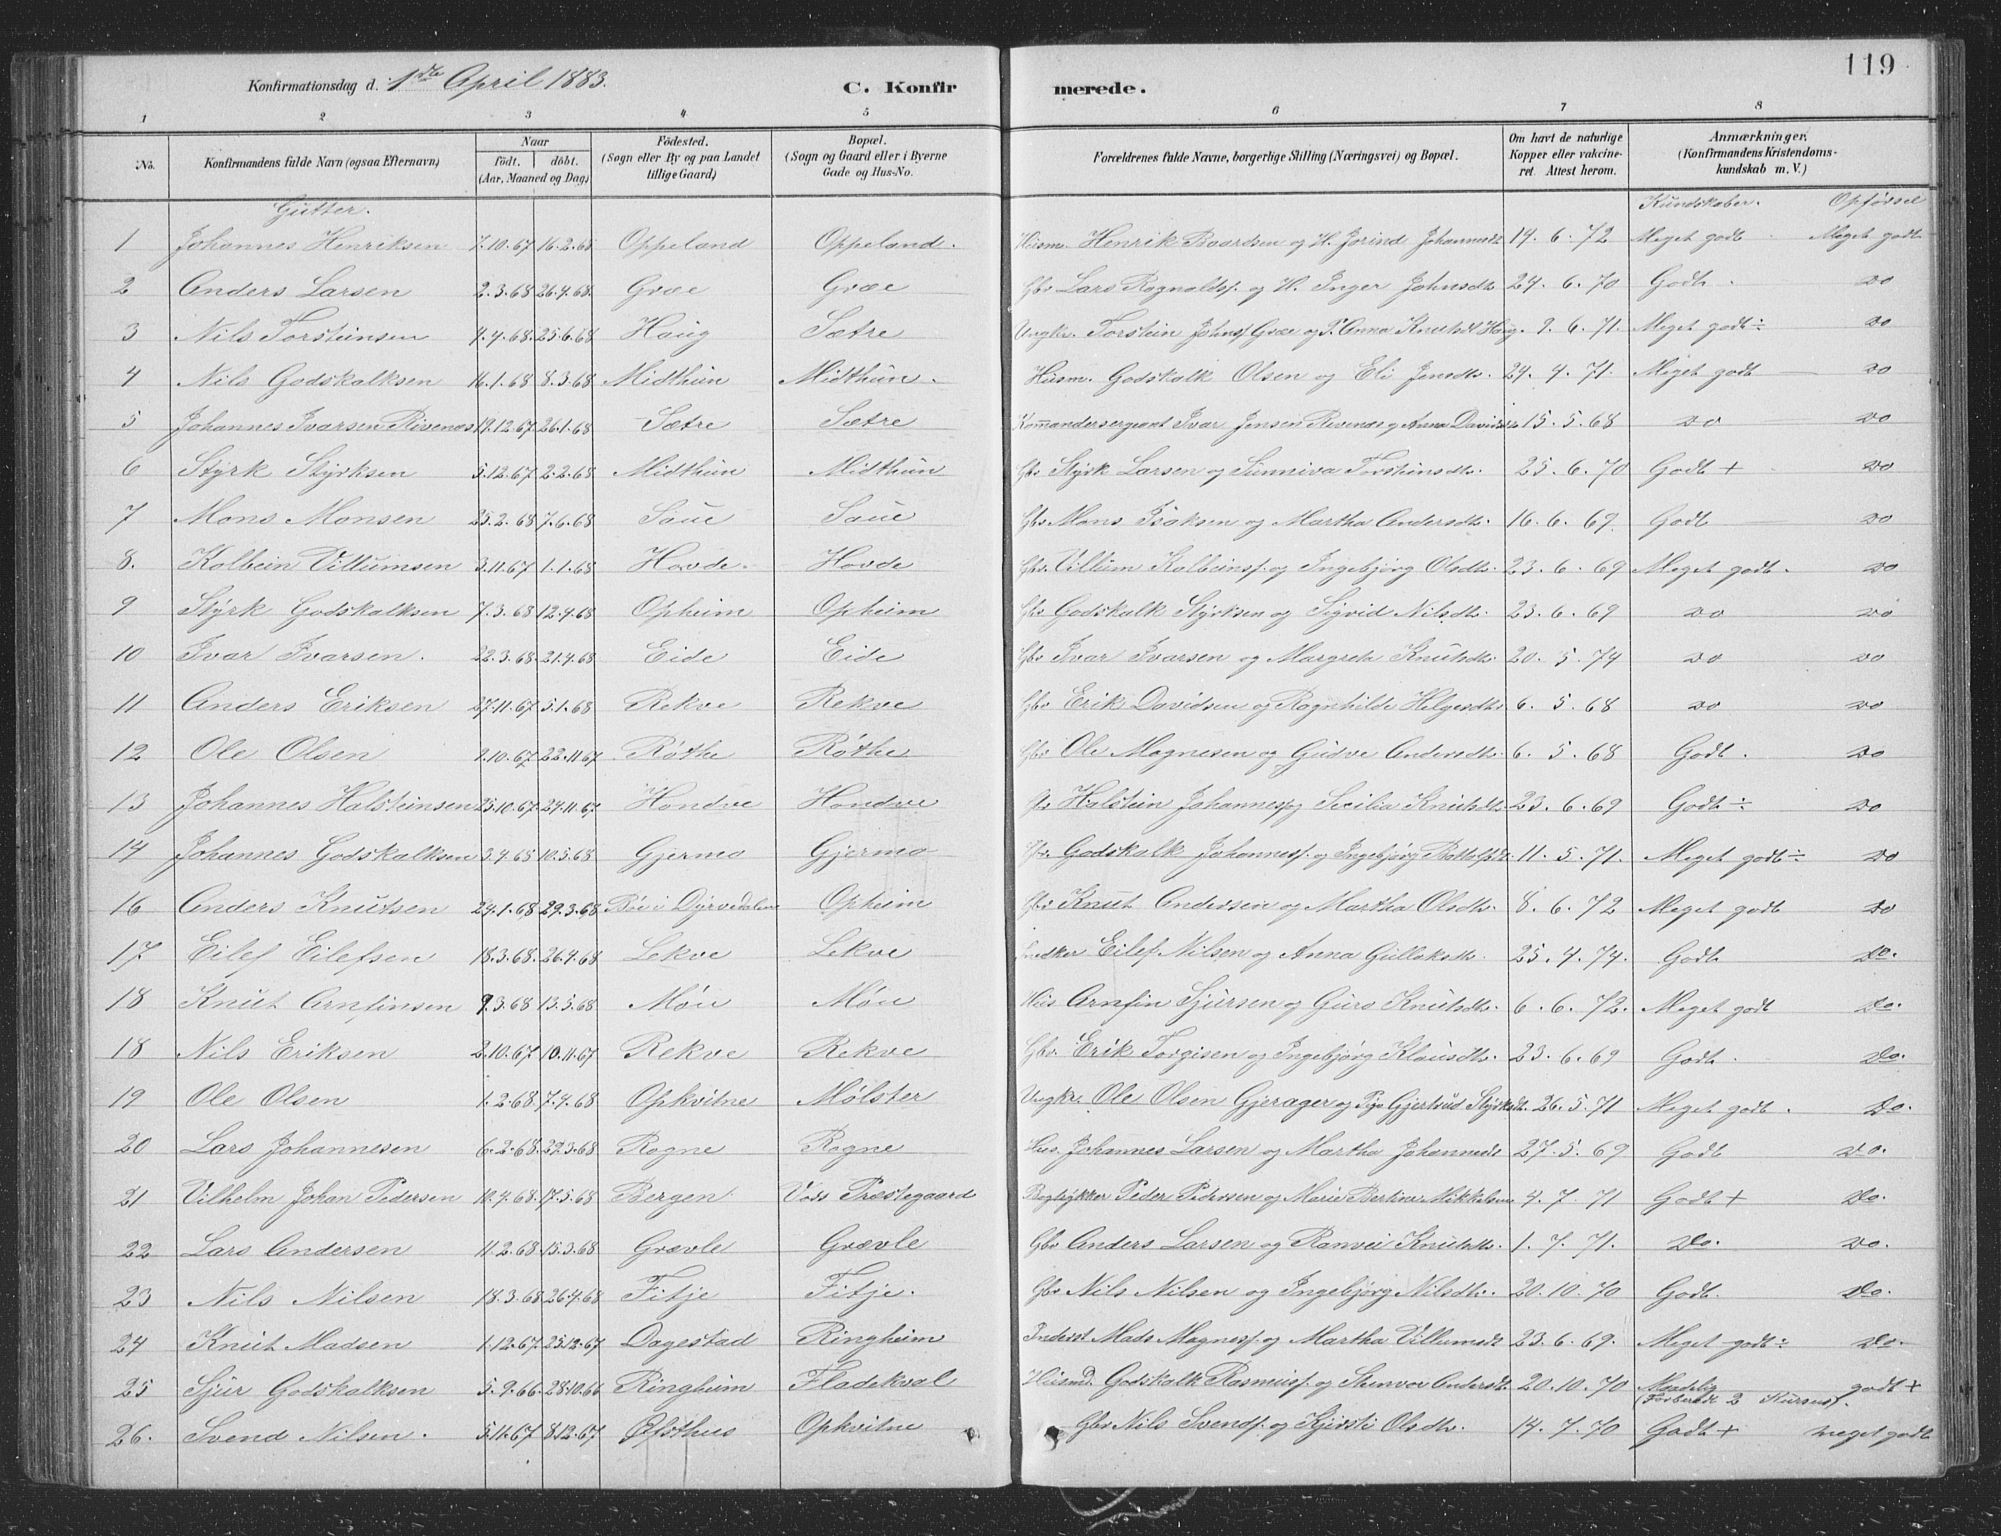 119
Konfirmationsdag d. 1ste April 1883.
C. Konfirmerede.
1 2 3 4 5 6 7 8
No. Konfirmandens fulde Navn (ogsaa Efternavn) Naar født. døbt. (Aar, Maaned og Dag) Fødested. (Sogn eller By og paa Landet tillige Gaard) Bopæl. (Sogn og Gaard eller i Byerne Gade og Hus-No. Forældrenes fulde Navne, borgerlige Stilling (Næringsvei) og Bopæl. Om havt de naturlige Kopper eller vakcineret. Attest herom. Anmærkninger. (Konfirmandens Kristendomskundskab m. V.)
Gutter. Kundskaber. Opførsel
1 Johannes Henriksen 7.10.67 16.2.68 Oppeland Oppeland. Husm. Henrik Baardsen og H. Jorind Johannesdt. 14.6.72 Meget godt Meget godt
2 Anders Larsen 2.3.68 26.4.68 Græe Græe Gbr Lars Ragnalds. og H. Inger Johnsdt. 24.6.70 Godt do
3 Nils Torsteinsen 4.4.68 25.6.68 Haug Sætre Ungkr. Torstein Johns. Græe og P. Anna Knutsdt Haug. 9.6.71. Meget godt ÷ do
4 Nils Godskalksen 16.1.68 8.3.68 Midthun Midthun. Husm. Godskalk Olsen og Eli Jensdt. 29.4.71. Meget godt do
5 Johannes Ivarsen Rivenæs 19.12.67 26.1.68 Sætre Sætre Kommandersergeant Ivar Jensen Rivenæs og Anna Davidsdt. 15.5.68 do do
6 Styrk Styrksen 5.12.67 2.2.68 Midthun Midthun Gbr Styrk Larsen og Sunniva Torsteinsdt. 25.6.70 Godt + do
7 Mons Monsen 25.2.68 7.6.68 Saue Saue Gbr Mons Isaksen og Martha Andersdt. 16.6.69. Godt do
8. Kolbein Villumsen 3.11.67 1.1.68 Hovde. Hovde Gbr. Villum Kolbeins. og Ingebjørg Olsdt. 23.6.69 Meget godt. do
9 Styrk Godskalksen 7.3.68 12.4.68 Opheim Opheim Gbr Godskalk Styrksen og Sigrid Nilsdt. 23.6.69 do do
10 Ivar Ivarsen. 22.3.68. 21.4.68 Eide Eide Gbr Ivar Ivarsen og Margreta Knutsdt. 20.5.74 do do
11 Anders Eriksen 27.11.67 5.1.68 Rekve Rekve Gbr Erik Davidsen og Ragnhilde Helgesdt. 6.5.68 do do
12 Ole Olsen 1.10.67 22.11.67 Røthe Røthe Gbr Ole Magnesen og Gudve Andersdt. 6.5.68 Godt. do
13 Johannes Halsteinsen 25.10.67 24.11.67 Hondve Hondve Halstein Johannes. og Secilia Knutsdt. 23.6.69 Godt ÷ do
14 Johannes Godskalksen 3.4.68 10.5.68 Gjermo Gjermo Gbr Godskalk Johannes. og Ingebjørg Bottolfsdt. 11.5.71. Meget godt ÷ do
16 Anders Knutsen 24.1.68 29.3.68 Bøe i Dyrvedalen Opheim Gbr Knut Andersen og Martha Olsdt. 8.6.72 Meget godt do
17 Eilef Eilefsen 18.3.68. 26.4.68 Lekve Lekve Snedker Eilef Nilsen og Anna Gulleksdt. 25.4.74. Godt do.
18 Knut Arnfinsen 9.3.68 13.5.68 Møn Møn Hus Arnfin Sjursen og Guro Knutsdt. 6.6.72. Meget godt do.
18 Nils Eriksen 2.10.67 10.11.67 Rekve Rekve Gbr. Erik Torgisen og Ingebjørg Klausdt. 23.6.69 Godt. do.
19 Ole Olsen 1.2.68 7.4.68 Opkvitne Mølster Ungkr. Ole Olsen Gjerager og Pige Gjertrud Styrksdt. 26.5.71 Meget godt. do.
20 Lars Johannesen 6.2.68. 22.3.68 Rogne Rogne Hus. Johannes Larsen og Martha Johannesdt 27.5.69 Godt do.
21 Vilhelm Johan Pedersen 10.4.68 17.5.68 Bergen Vos Præstegaard Bogtrykker Peder Pedersen og Marie Bertine Mikkelsen 4.7.71 Godt + do.
22 Lars Andersen 11.2.68 15.3.68 Grævle Grævle Gbr Anders Larsen og Ranvei Knutsdt. 1.7.71. do. do.
23 Nils Nilsen 18.3.68 26.4.68 Fitje Fitje. Gbr Nils Nilsen og Ingebjørg Nilsdt. 20.10.70 Godt. do.
24 Knut Madsen 1.12.67. 25.12.67 Dagestad Ringheim Inderst Mads Magnes. og Martha Villumsdt 23.6.69. Meget godt ÷ do.
25 Sjur Godskalksen 5.9.66. 28.10.66 Ringheim Fladekval Husmd. Godskalk Rasmus. og Stenvor Andersdt. 20.10.70 Maadelig (Forberedt 2 Kursus). godt +
26. Svend Nilsen. 5.11.67 8.12.67 Øfsthus Opkvitne Gbr Nils Svends. og Kjersti Olsdt. 14.7.70 Godt + meget godt